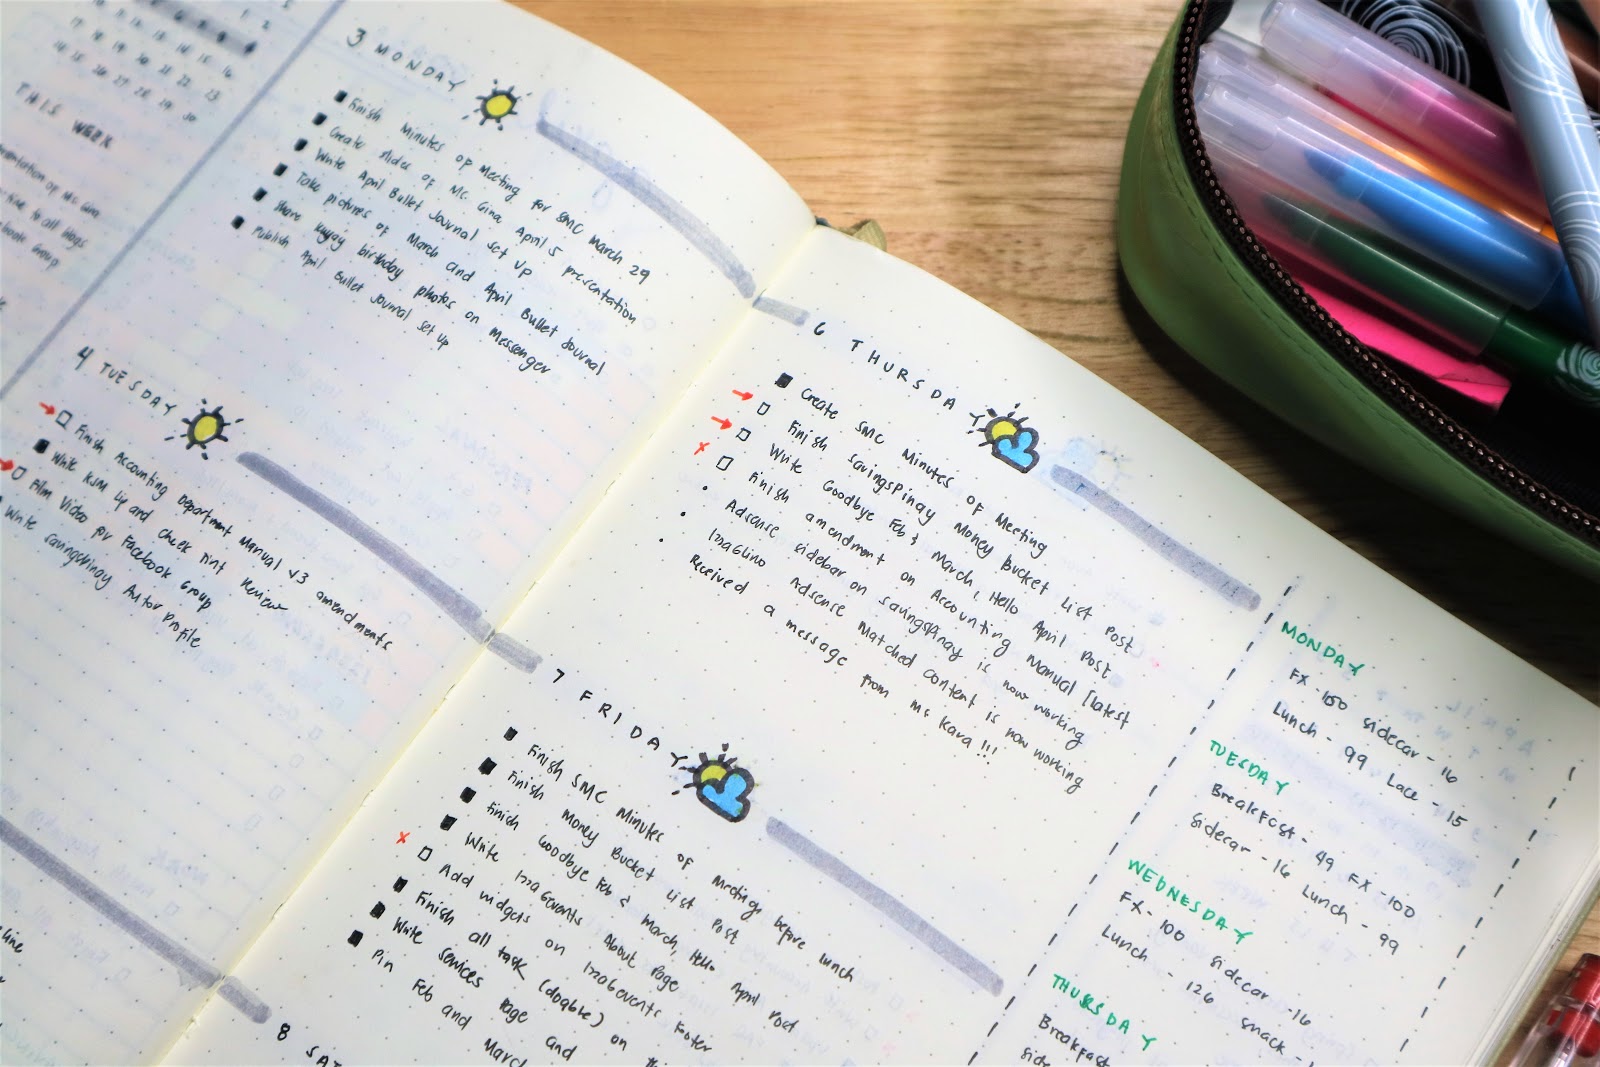 1 2
16
17 18 19 20 21 22 23
24 25 26 27 28 29 30
THIS WEEK
to all blogs
Group
3 MONDAY
Finish Minutes of Meeting for SMC March 29
Create slides of Ms. Gina April 5 presentation
Write April Bullet Journal set up
Take pictures of March and April Bullet Journal
Share kuyaj birthday photos on messenger
Publish April Bullet Journal set up
4 TUESDAY
Finish Accounting Department Manual v3 amendments
Write KSM Lip and Cheek Tint Review
Film Video for Facebook Group
Write savingsPinay Author Profile
6 THURSDAY
Create SMC Minutes of Meeting
Finish savingsPinay Money Bucket List Post
Write Goodbye Feb & March, Hello April Post
Finish amendment on Accounting Manual [latest
Adsense sidebar on savingsPinay is now working
IzzaGlino Adsense Matched Content is now working
Received a message from Ms Kara !!!
7 FRIDAY
Finish SMC Minutes of Meeting before lunch
Finish Money Bucket List Post
Finish Goodbye Feb & March, Hello April Post
Write IzzaGevents About Page
Add widgets on IzzaGevents Footer
Finish all task (doable) on
Write Services Page and
Pin Feb and March
8 SAT
MONDAY
FX - 100 sidecar - 16
Lunch - 99 Lace - 15
TUESDAY
Breakfast - 49 FX - 100
sidecar - 16 Lunch - 99
WEDNESDAY
FX - 100 sidecar - 16
Lunch - 126 snack -
THURSDAY
Breakfast
side